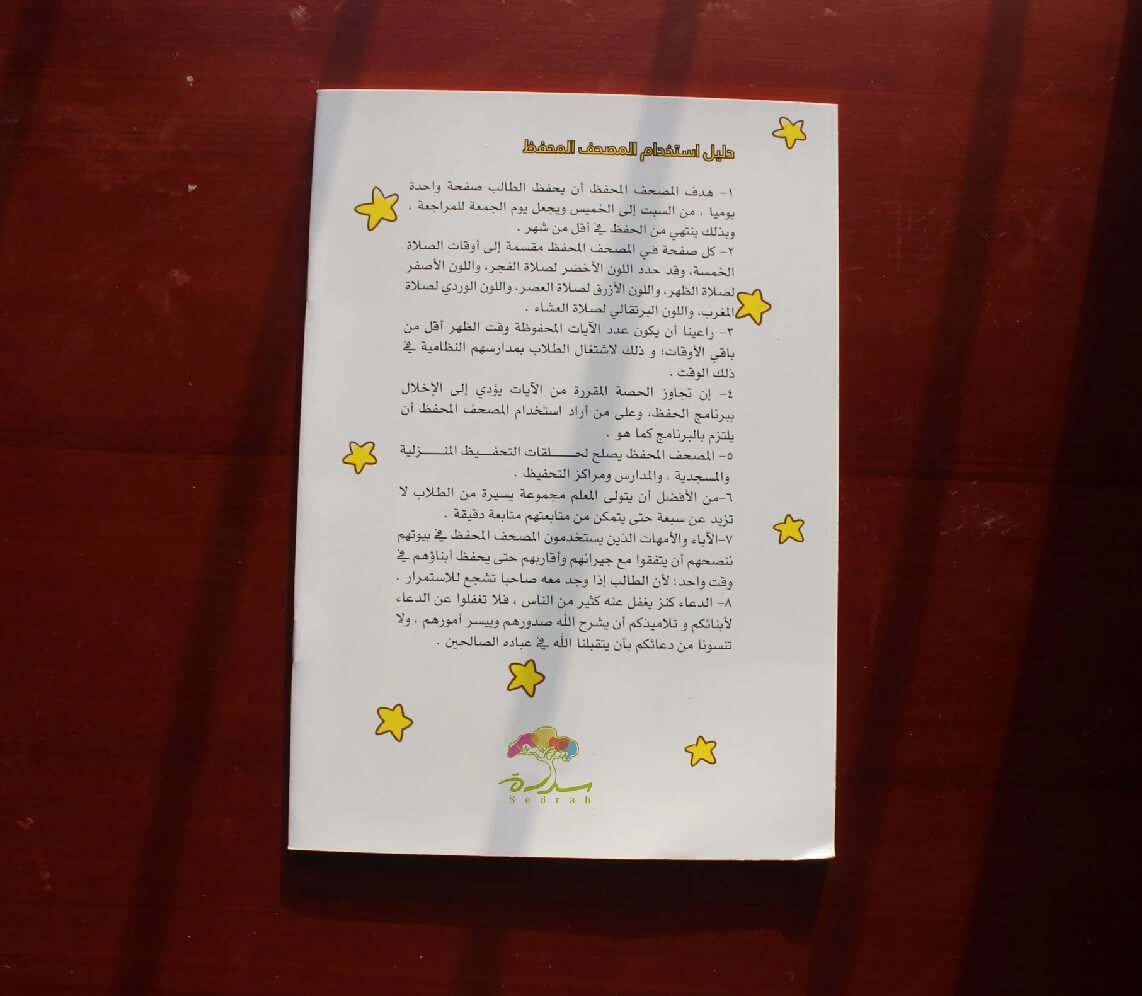 دليل استخدام المصحف المحفظ
١- هدف المصحف المحفظ أن يحفظ الطالب صفحة واحدة
يوميا ، من السبت إلى الخميس ويجعل يوم الجمعة للمراجعة ،
وبذلك ينتهي من الحفظ في أقل من شهر .
٢- كل صفحة في المصحف المحفظ مقسمة إلى أوقات الصلاة
الخمسة، وقد حدد اللون الأخضر لصلاة الفجر، واللون الأصفر
لصلاة الظهر، واللون الأزرق لصلاة العصر، واللون الوردي لصلاة
المغرب، واللون البرتقالي لصلاة العشاء .
٣- راعينا أن يكون عدد الآيات المحفوظة وقت الظهر أقل من
باقي الأوقات؛ و ذلك لاشتغال الطلاب بمدارسهم النظامية في
ذلك الوقت .
٤- إن تجاوز الحصة المقررة من الآيات يؤدي إلى الإخلال
ببرنامج الحفظ، وعلى من أراد استخدام المصحف المحفظ أن
يلتزم بالبرنامج كما هو .
٥- المصحف المحفظ يصلح لحـــلقات التحفـــيظ المنـــزلية
والمسجدية ، والمدارس ومراكز التحفيظ .
٦-من الأفضل أن يتولى المعلم مجموعة يسيرة من الطلاب لا
تزيد عن سبعة حتى يتمكن من متابعتهم متابعة دقيقة .
٧-الآباء والأمهات الذين يستخدمون المصحف المحفظ في بيوتهم
ننصحهم أن يتفقوا مع جيرانهم وأقاربهم حتى يحفظ أبناؤهم في
وقت واحد؛ لأن الطالب إذا وجد معه صاحبا تشجع للاستمرار .
٨- الدعاء كنز يغفل عنه كثير من الناس ، فلا تغفلوا عن الدعاء
لأبنائكم و تلاميذكم أن يشرح الله صدورهم وييسر أمورهم ، ولا
تنسونا من دعائكم بأن يتقبلنا الله في عباده الصالحين .
سدرة
Sedrah